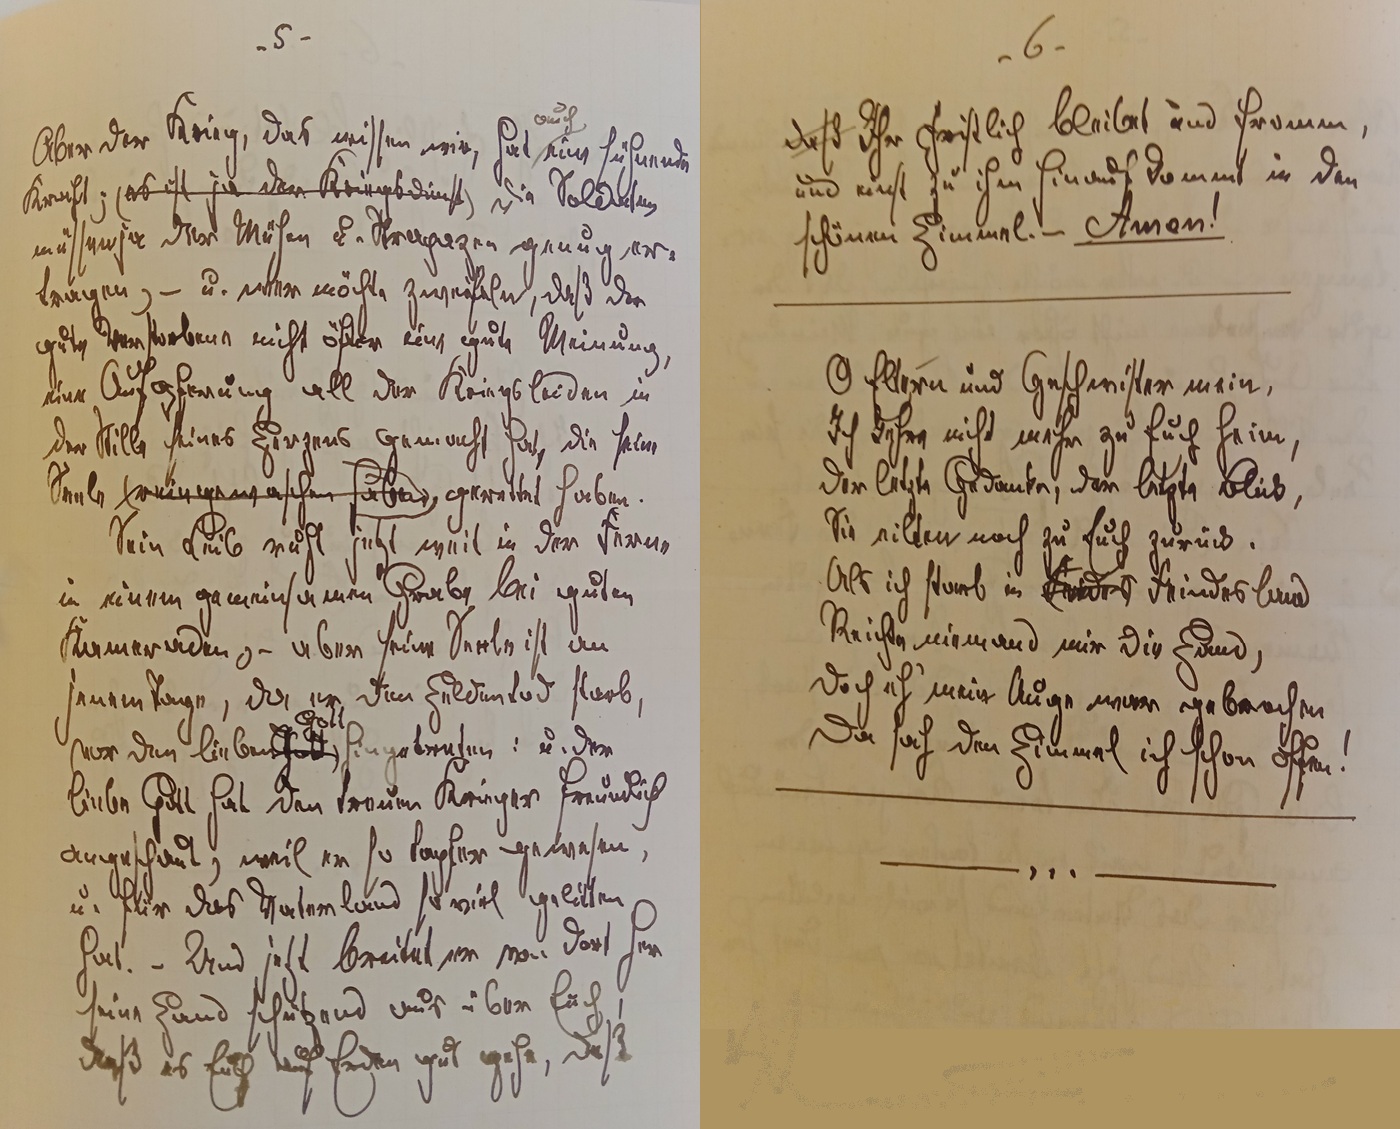 - 5 -
auch
Aber der Krieg, das wissen wir, hat eine sühnende
Kraft; (es ist ja der Kriegsdienst) die Soldaten
müssen ja der Mühen u. Strapazen genug er-
tragen, – u. wer möchte zweifeln, daß der
gute Verstorbene nicht öfter eine gute Meinung,
eine Aufopferung all der Kriegsleiden in
der Stille seines Herzens gemacht hat, die seine
Seele (reingewaschen haben), gerettet haben.
Sein Leib ruht jetzt weit in der Ferne
in einem gemeinsamen Grabe bei guten
Kameraden, – aber seine Seele ist an
jenem Tage, da er den Heldentod starb,
Gott
vor den lieben Gott hingetreten: u. der
liebe Gott hat den treuen Krieger freundlich
angeschaut, weil er so tapfer gewesen,
u. für das Vaterland so viel gelitten
hat. – Und jetzt breitet er von dort her
seine Hand schützend aus über Euch,
daß es Euch auf Erden gut gehe, daß
- 6 -
daß Ihr christlich bleibet und fromm,
und einst zu ihm hinauf kommt in den
schönen Himmel. – Amen!
O Eltern und Geschwister mein,
Ich kehre nicht mehr zu Euch heim,
Der letzte Gedanke, der letzte Blick,
Sie eilten noch zu Euch zurück.
Als ich starb in Feindesland
Reichte niemand mir die Hand,
Doch eh' mein Auge war gebrochen
Da sah den Himmel ich schon offen!